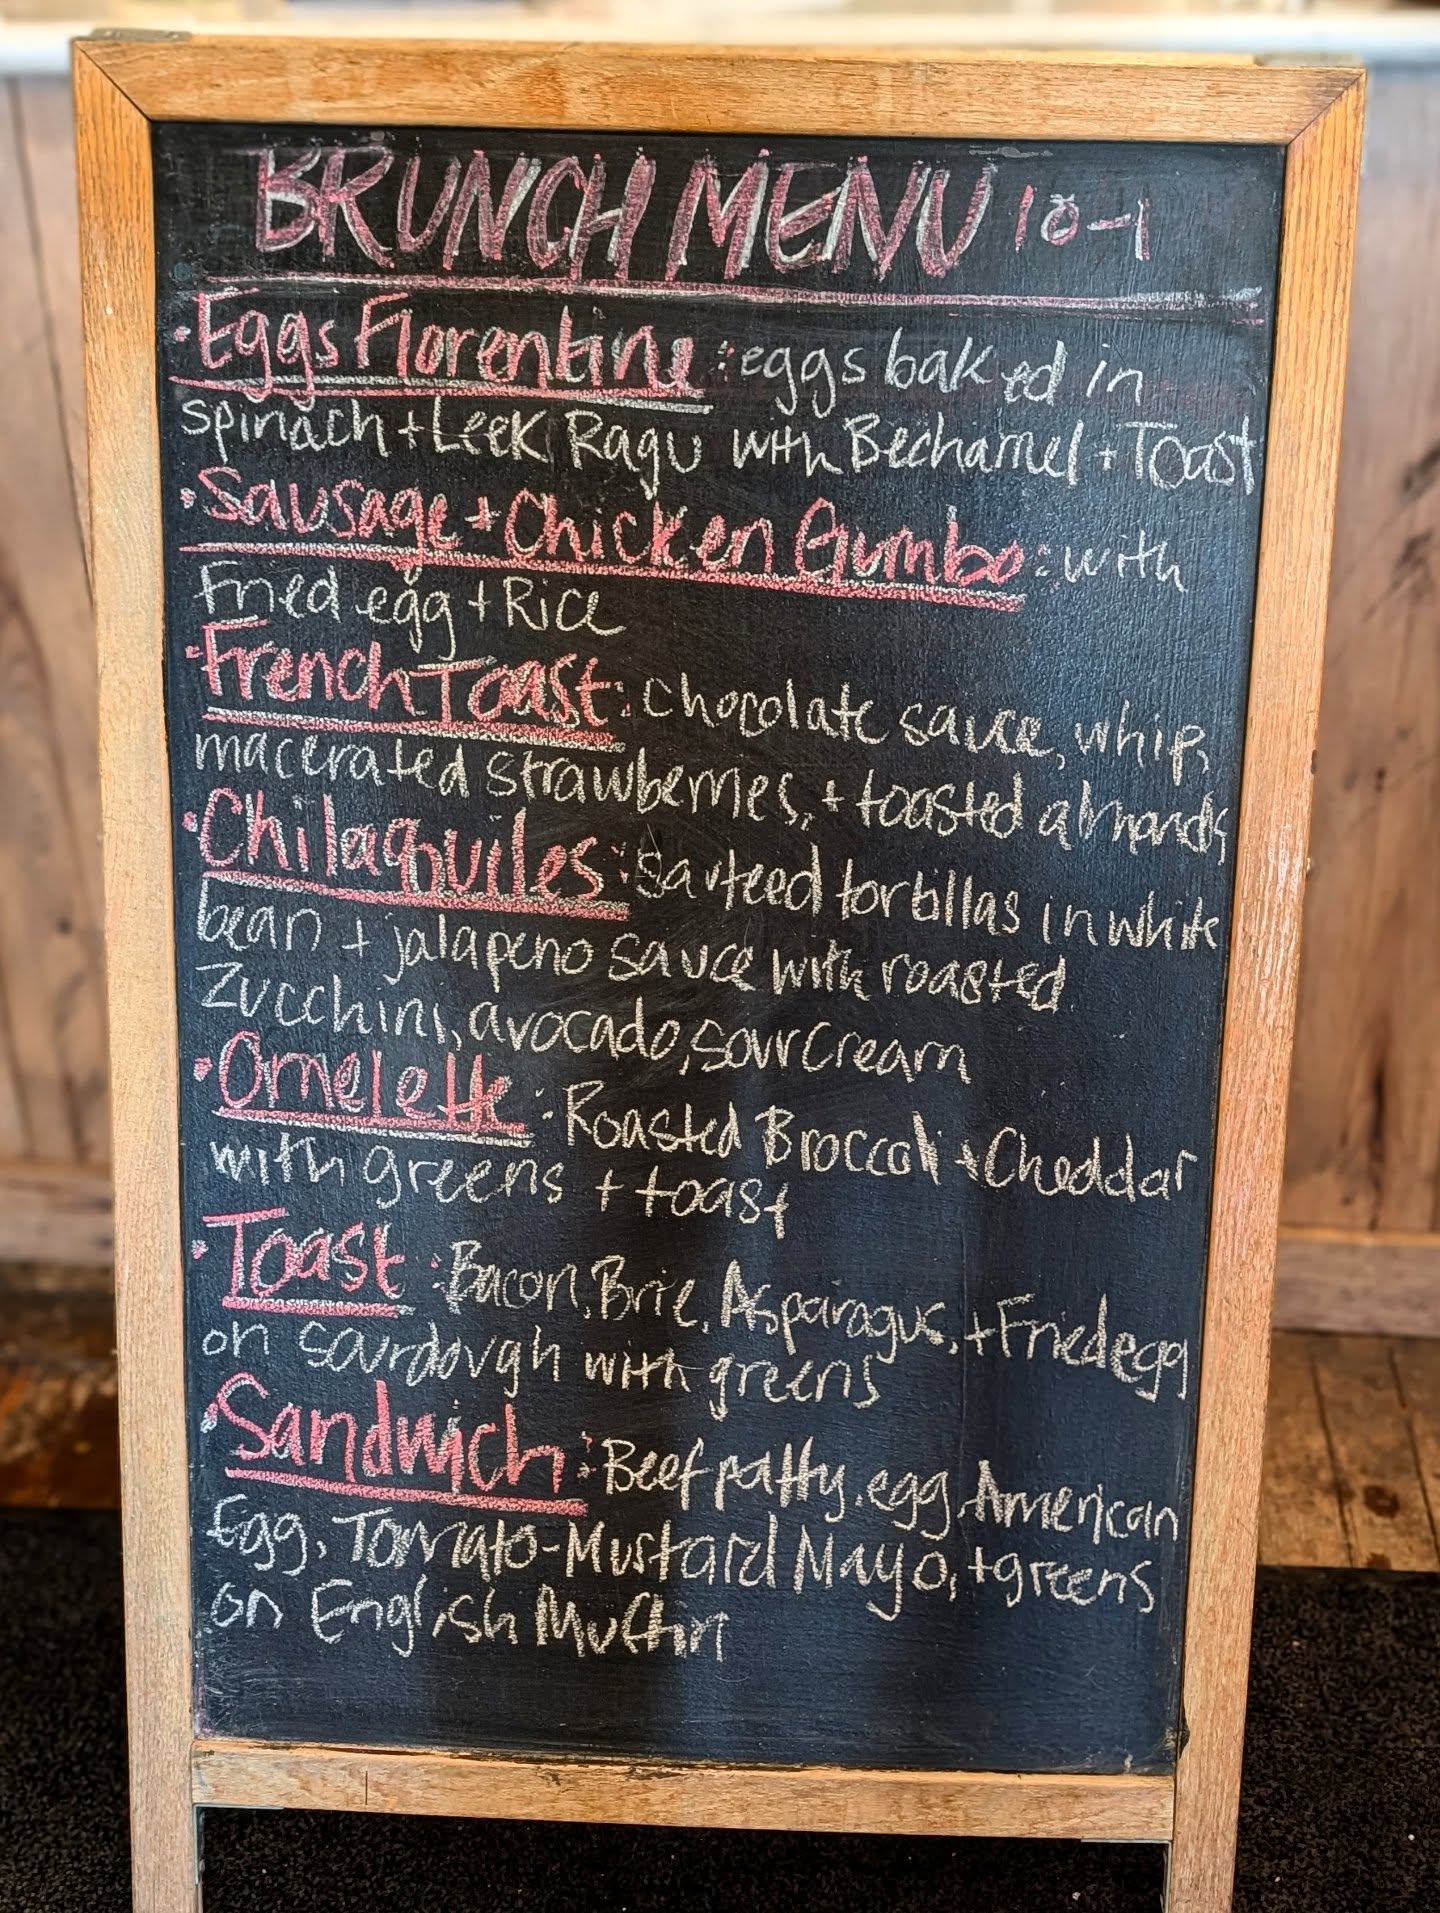 BRUNCH MENU 10-1
• Eggs Florentine: eggs baked in
spinach + Leek Ragu with Bechamel + Toast
• Sausage + Chicken Gumbo: with
Fried egg + Rice
• French Toast: chocolate sauce, whip,
macerated strawberries, + toasted almonds
• Chilaquiles: sauteed tortillas in white
bean + jalapeno sauce with roasted
zucchini, avocado, sour cream
• Omelette: Roasted Broccoli + Cheddar
with greens + toast
• Toast: Bacon, Brie, Asparagus, + Fried egg
on sourdough with greens
• Sandwich: Beef patty, egg, American
Egg, Tomato-Mustard Mayo, + greens
on English Muffin